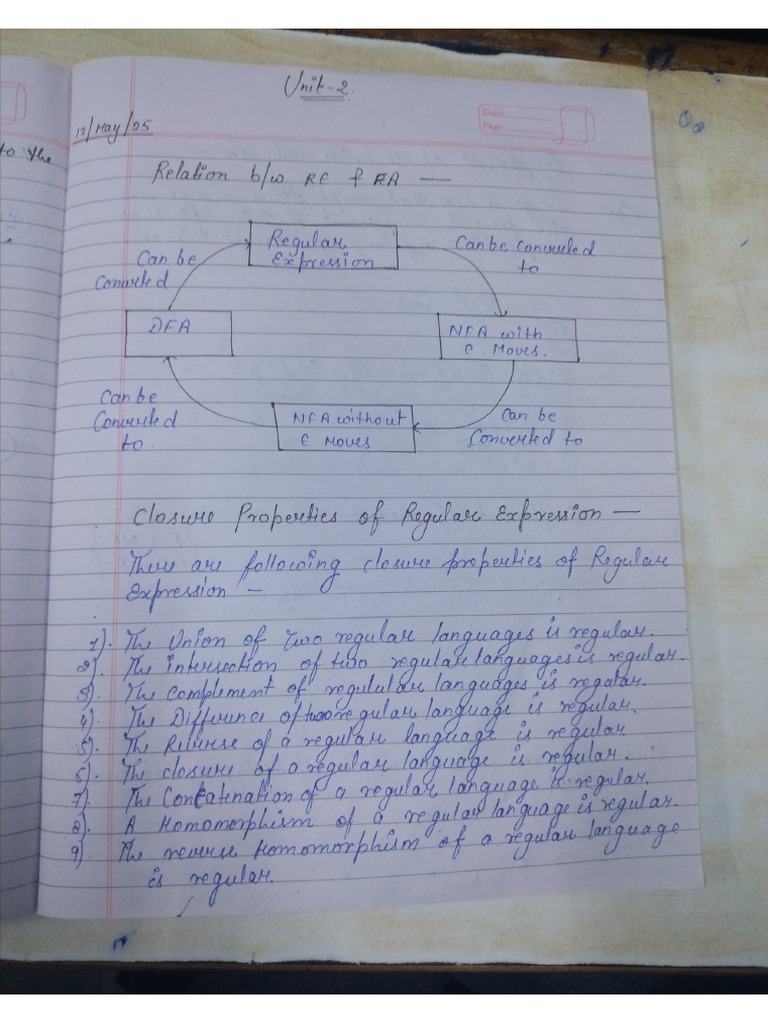 Unit-2.
Date:
Page:
12/May/25
to the
Relation b/w RE & FA —
Regular
Expression
Can be
Converted
Can be Converted
to
DFA
NFA with
ϵ Moves.
Can be
Converted
to.
NFA without
ϵ Moves
Can be
Converted to
Closure Properties of Regular Expression —
There are following closure properties of Regular
Expression —
1). The Union of Two regular languages is regular.
2). The intersection of two regular languages is regular.
3). The complement of regulular languages is regular.
4). The Difference of two regular language is regular.
5). The Reverse of a regular language is regular
6). The closure of a regular language is regular.
7). The Concatenation of a regular language is regular.
8). A Homomorphism of a regular language is regular.
9). The reverse Homomorphism of a regular language
is regular.